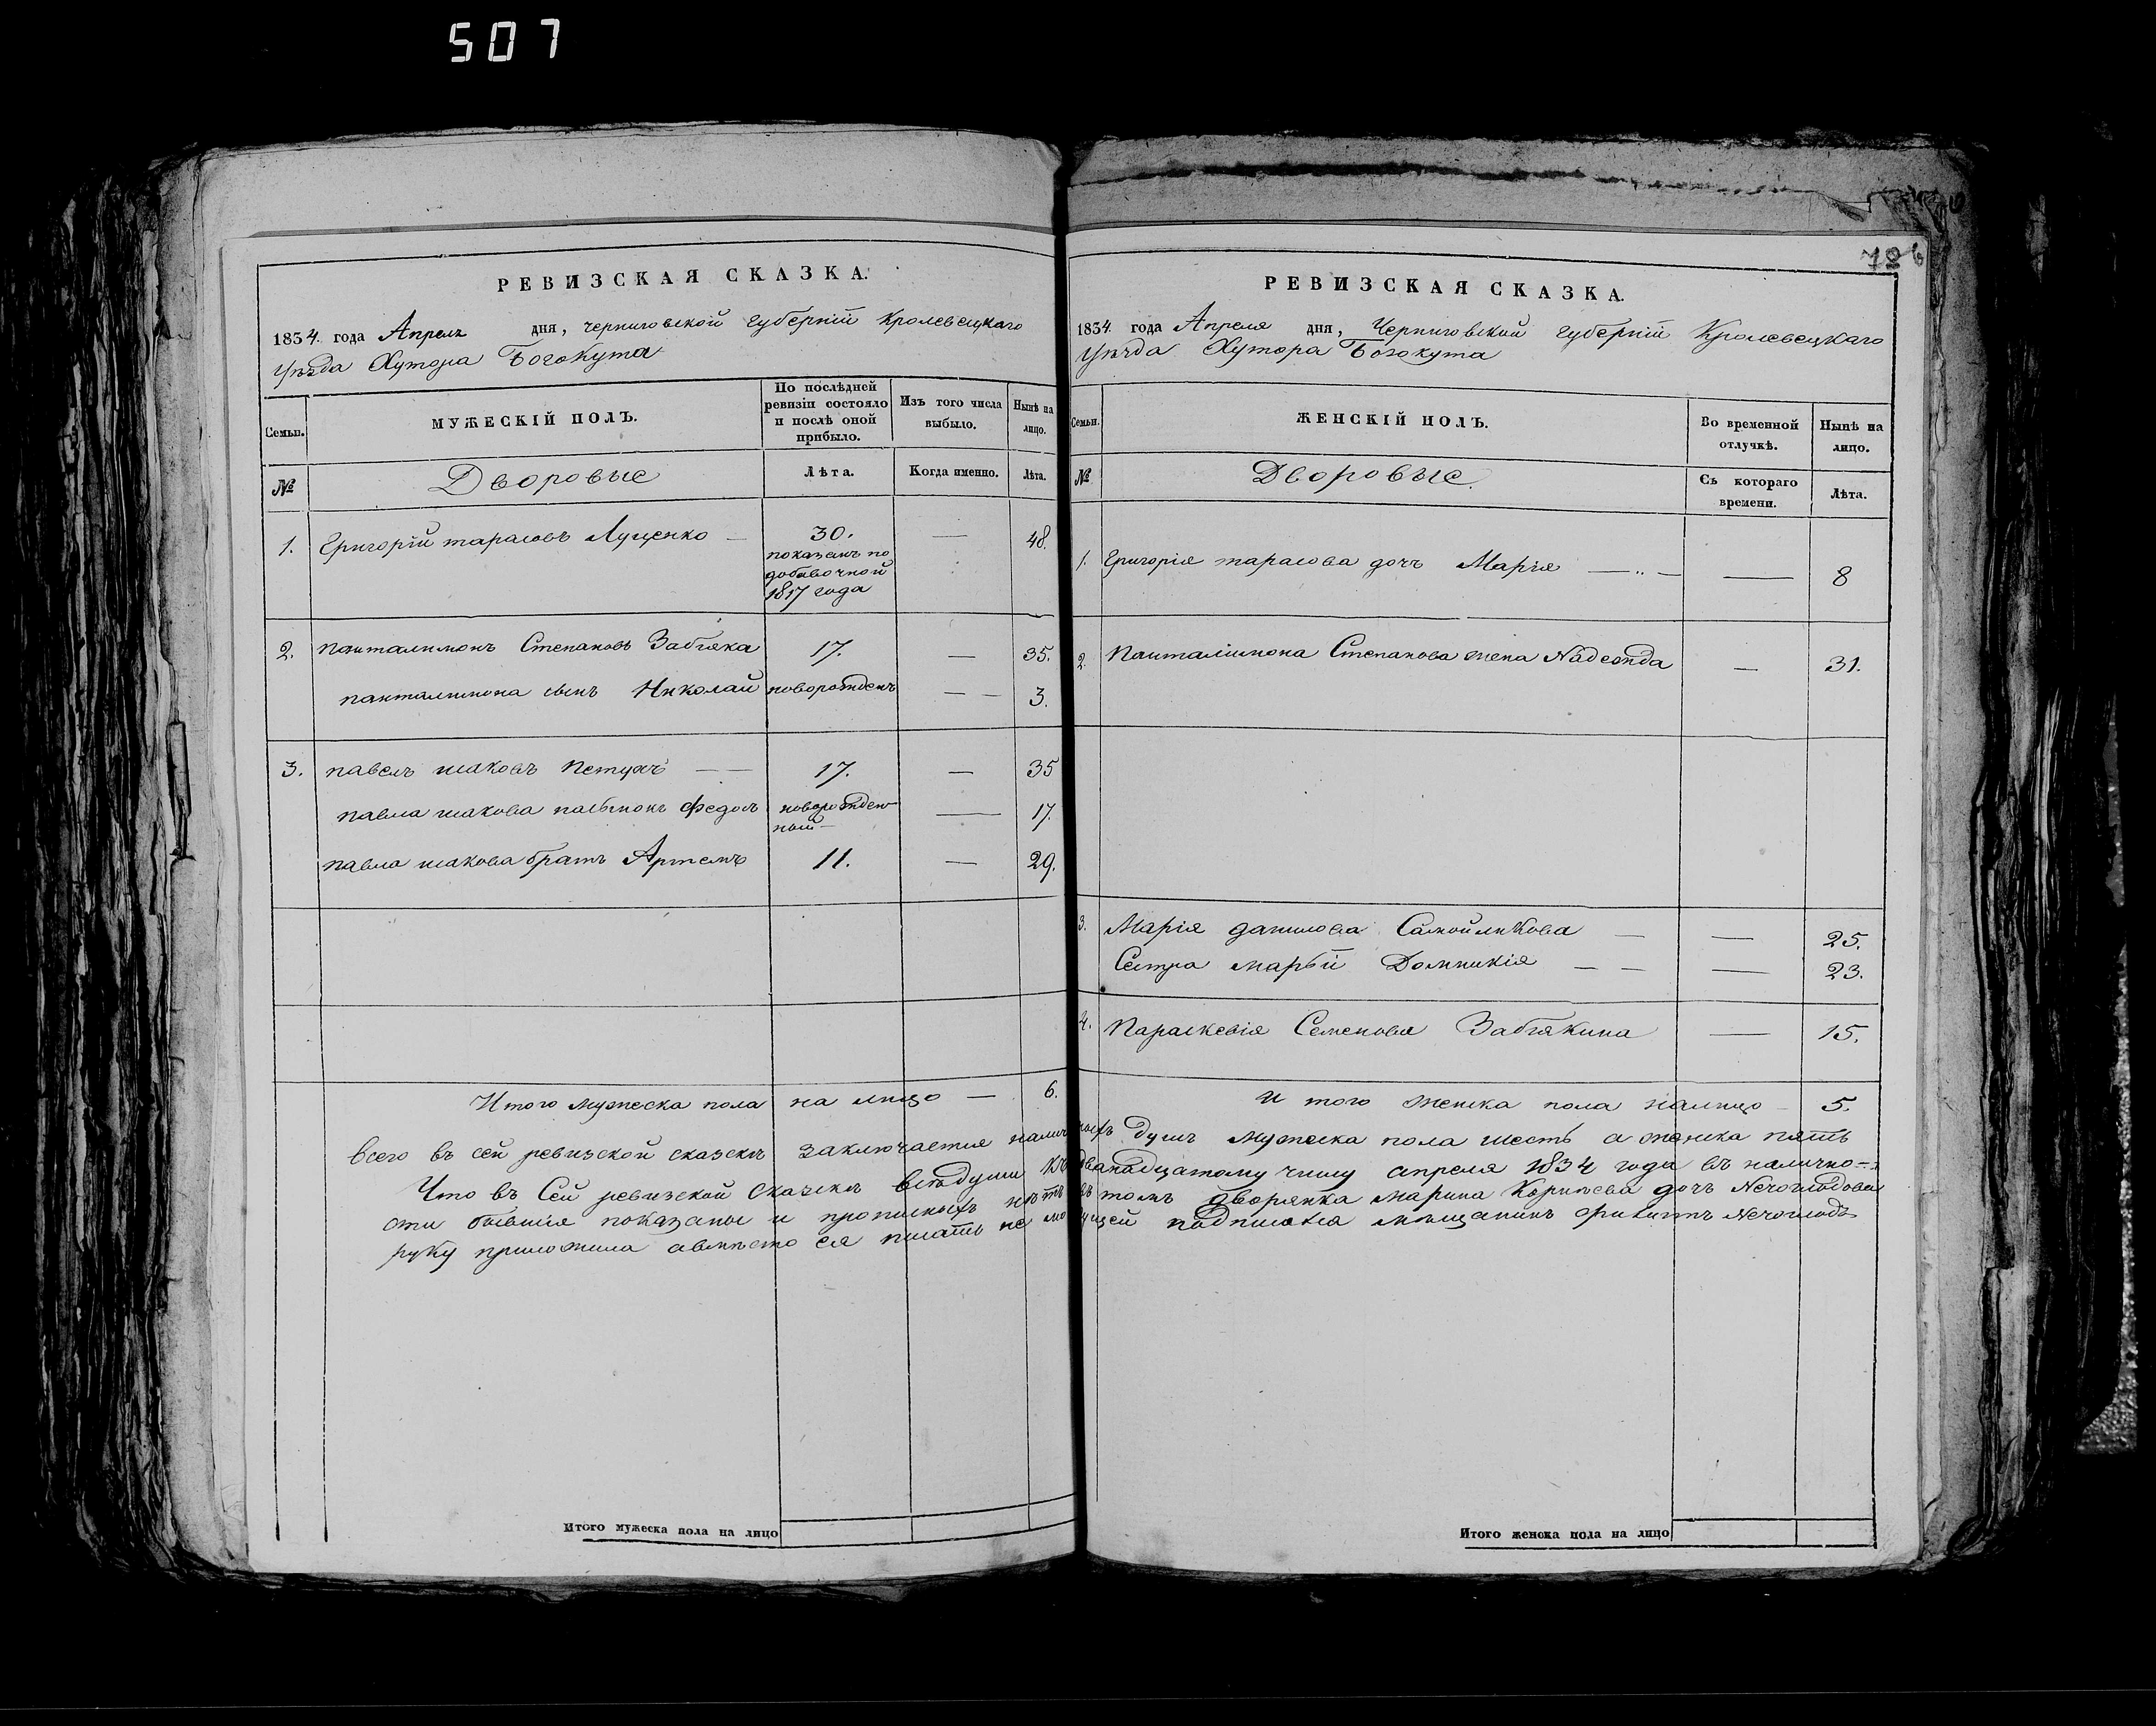 507
РЕВИЗСКАЯ СКАЗКА.
1834. года Апреля дня, Черниговской Губернїи Кролевецкаго
уѣзда Хутора Богокута
Семьи.
МУЖЕСКІЙ ПОЛЪ.
По послѣдней ревизіи состояло и послѣ оной прибыло.
Изъ того числа выбыло.
Нынѣ на лицо.
№
Дворовые
Лѣта.
Когда именно.
Лѣта.
1. Григорїй тарасовъ Луценко — 30. — 48.
показанъ по
добавочной
1817 года
2. панталимонъ Степановъ Забїяка 17. — 35.
панталимона сынъ Николай новорожденъ — — 3.
3. павелъ исаковъ петухъ — — 17. — 35
павла исакова пасынокъ Федоръ новорожден — 17.
ный —
павла исакова братъ Артемъ 11. — 29.
Итого мужеска пола на лицо — 6.
Итого мужеска пола на лицо
РЕВИЗСКАЯ СКАЗКА.
1834. года Апреля дня, Черниговской Губернїи Кролевецкаго
уѣзда Хутора Богокута
Семьи.
ЖЕНСКІЙ ПОЛЪ.
Во временной отлучкѣ.
Нынѣ на лицо.
№
Дворовые.
Съ котораго времени.
Лѣта.
1. Григорїя тарасова дочь Марїя — — 8
2. Панталїимона Степанова жена Надежда — 31.
3. Марїя данилова Самойликова — — 25.
Сестра марьи Домникїя — — — 23.
4. Параскевїя Семенова Забїякина — 15.
и того женска пола налицо 5.
всего въ сей ревизской сказкѣ заключается наличныхъ душъ мужеска пола шесть а женска пять
Что въ Сей ревизской Сказкѣ всѣ души къ двенадцатому числу апреля 1834 года въ налично-
сти бывшїя показаны и прописныхъ нѣтъ въ томъ дворянка марина дочь Нечоглодова
руку приложила авмѣсто ея писать не могущей подписался мѣщанинъ Нечоглодъ
Итого женска пола на лицо